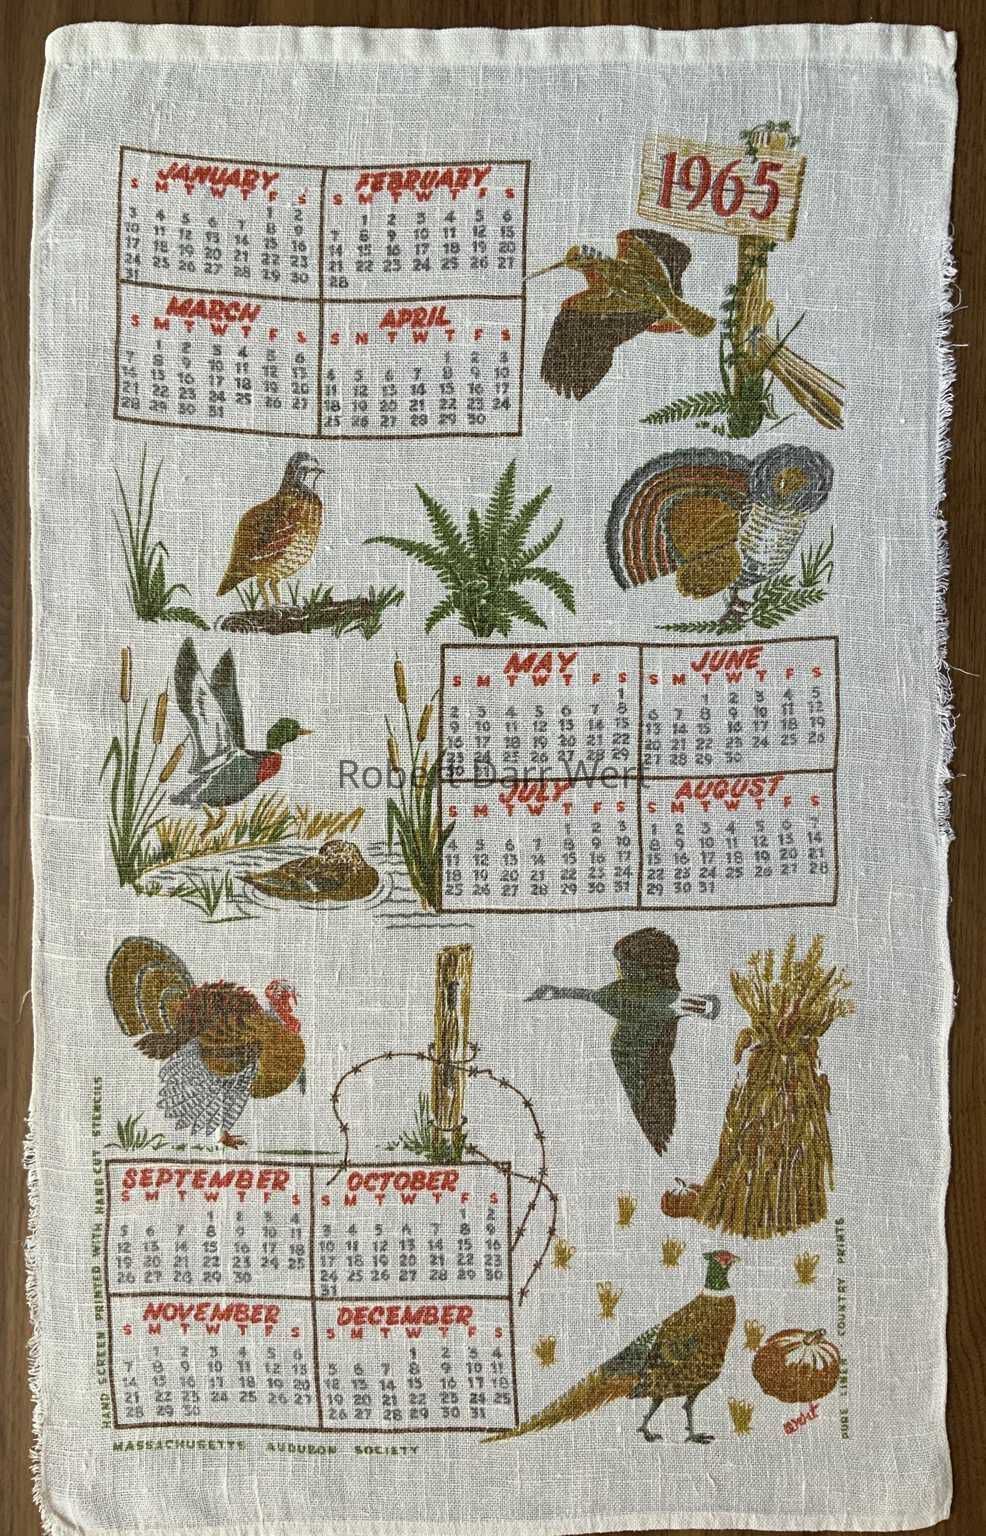 1965
JANUARY
S M T W T F S
1 2
3 4 5 6 7 8 9
10 11 12 13 14 15 16
17 18 19 20 21 22 23
24 25 26 27 28 29 30
31
FEBRUARY
S M T W T F S
1 2 3 4 5 6
7 8 9 10 11 12 13
14 15 16 17 18 19 20
21 22 23 24 25 26 27
28
MARCH
S M T W T F S
1 2 3 4 5 6
7 8 9 10 11 12 13
14 15 16 17 18 19 20
21 22 23 24 25 26 27
28 29 30 31
APRIL
S M T W T F S
1 2 3
4 5 6 7 8 9 10
11 12 13 14 15 16 17
18 19 20 21 22 23 24
25 26 27 28 29 30
MAY
S M T W T F S
1
2 3 4 5 6 7 8
9 10 11 12 13 14 15
16 17 18 19 20 21 22
23 24 25 26 27 28 29
30 31
JUNE
S M T W T F S
1 2 3 4 5
6 7 8 9 10 11 12
13 14 15 16 17 18 19
20 21 22 23 24 25 26
27 28 29 30
Robert Darr Wert
JULY
S M T W T F S
1 2 3
4 5 6 7 8 9 10
11 12 13 14 15 16 17
18 19 20 21 22 23 24
25 26 27 28 29 30 31
AUGUST
S M T W T F S
1 2 3 4 5 6 7
8 9 10 11 12 13 14
15 16 17 18 19 20 21
22 23 24 25 26 27 28
29 30 31
SEPTEMBER
S M T W T F S
1 2 3 4
5 6 7 8 9 10 11
12 13 14 15 16 17 18
19 20 21 22 23 24 25
26 27 28 29 30
OCTOBER
S M T W T F S
1 2
3 4 5 6 7 8 9
10 11 12 13 14 15 16
17 18 19 20 21 22 23
24 25 26 27 28 29 30
31
NOVEMBER
S M T W T F S
1 2 3 4 5 6
7 8 9 10 11 12 13
14 15 16 17 18 19 20
21 22 23 24 25 26 27
28 29 30
DECEMBER
S M T W T F S
1 2 3 4
5 6 7 8 9 10 11
12 13 14 15 16 17 18
19 20 21 22 23 24 25
26 27 28 29 30 31
HAND SCREEN PRINTED WITH HAND CUT STENCILS
MASSACHUSETTS AUDUBON SOCIETY
PURE LINEN COUNTRY PRINTS